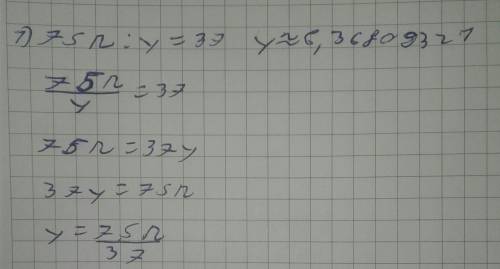 1) 75π : y = 37 y ≈ 6,36809321
75π/y = 37
75π = 37y
37y = 75π
y = 75π/37